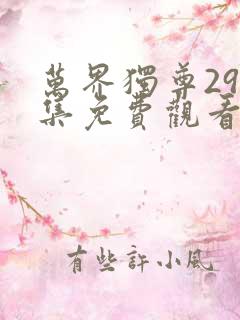 萬界獨尊29
集免費觀看
有些許小風